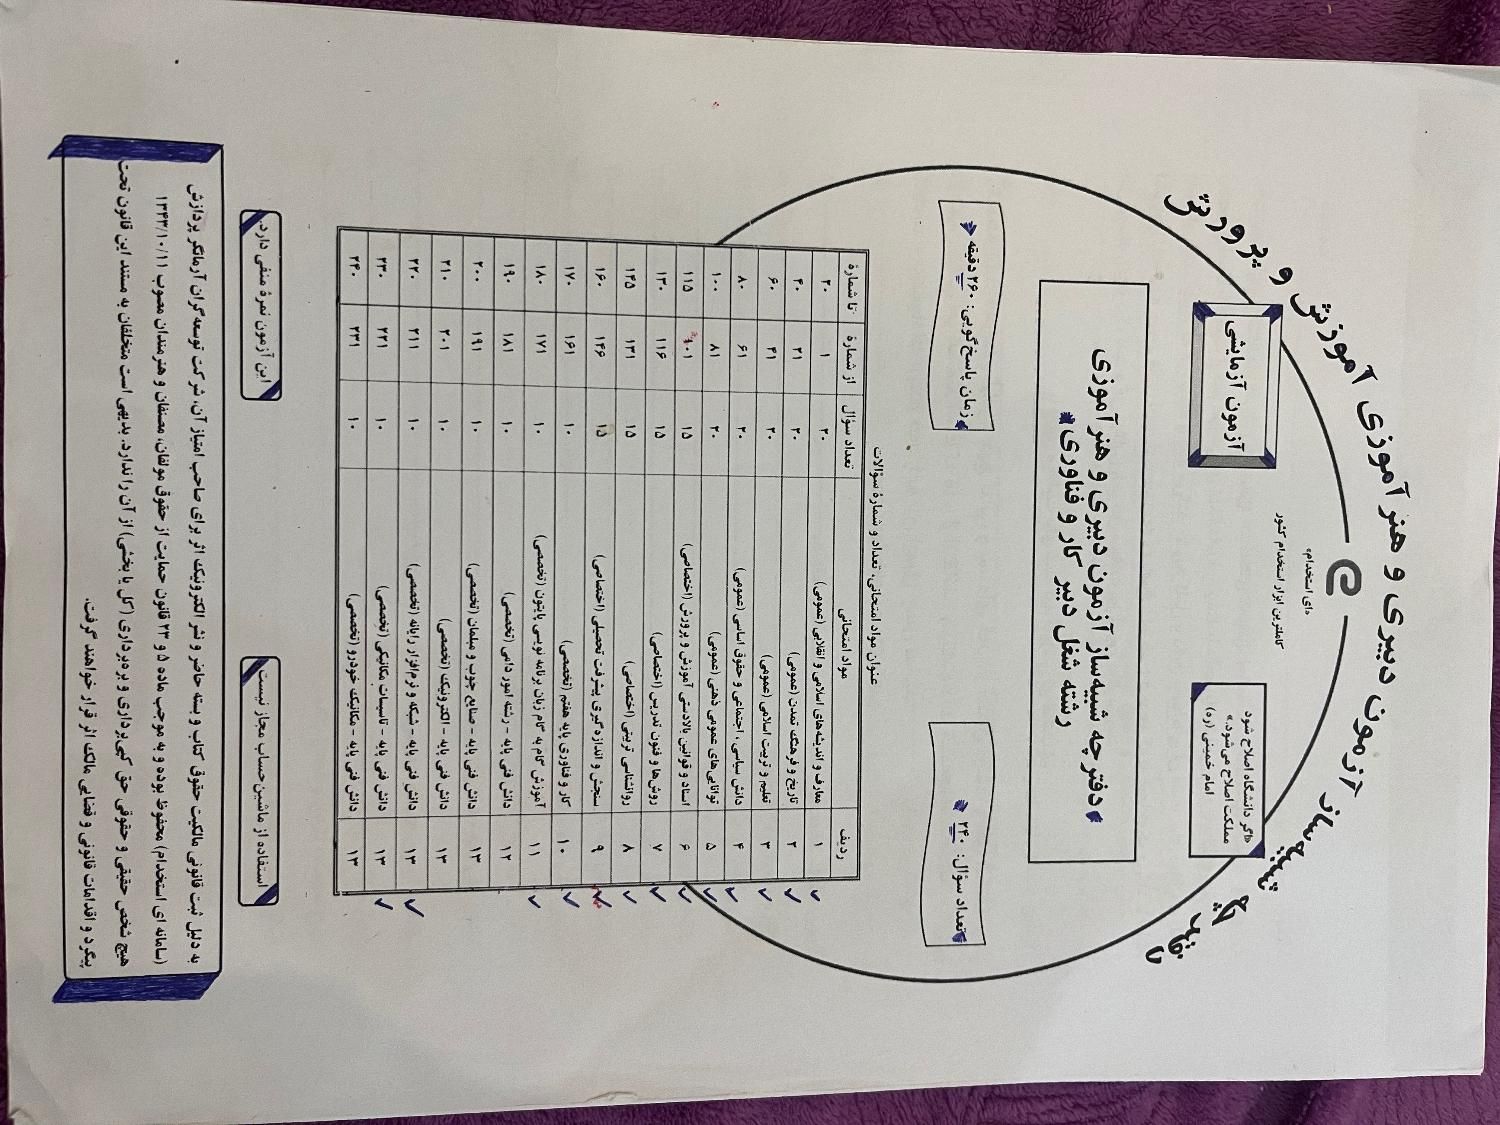 دفترچه شبیه‌ساز آزمون دبیری و هنرآموزی آموزش و پرورش
e
«ای استخدام»
کاملترین ابزار استخدام کشور
«اگر دانشگاه اصلاح شود
مملکت اصلاح می‌شود.»
امام خمینی (ره)
آزمون آزمایشی
دفترچه شبیه‌ساز آزمون دبیری و هنرآموزی
رشته شغل دبیر کار و فناوری
تعداد سؤال: ۲۴۰
زمان پاسخ‌گویی: ۲۶۰ دقیقه
عنوان مواد امتحانی، تعداد و شمارهٔ سؤالات
ردیف مواد امتحانی تعداد سؤال از شمارهٔ تا شمارهٔ
۱ معارف و اندیشه‌های اسلامی و انقلابی (عمومی) ۲۰ ۱ ۲۰
۲ تاریخ و فرهنگ تمدن (عمومی) ۲۰ ۲۱ ۴۰
۳ تعلیم و تربیت اسلامی (عمومی) ۲۰ ۴۱ ۶۰
۴ دانش سیاسی ، اجتماعی و حقوق اساسی (عمومی) ۲۰ ۶۱ ۸۰
۵ توانایی‌های عمومی ذهنی (عمومی) ۲۰ ۸۱ ۱۰۰
۶ اسناد و قوانین بالادستی آموزش و پرورش (اختصاصی) ۱۵ ۱۰۱ ۱۱۵
۷ روش‌ها و فنون تدریس (اختصاصی) ۱۵ ۱۱۶ ۱۳۰
۸ روانشناسی تربیتی (اختصاصی) ۱۵ ۱۳۱ ۱۴۵
۹ سنجش و اندازه‌گیری پیشرفت تحصیلی (اختصاصی) ۱۵ ۱۴۶ ۱۶۰
۱۰ کار و فناوری پایه هفتم (تخصصی) ۱۰ ۱۶۱ ۱۷۰
۱۱ آموزش گام به گام زبان برنامه نویسی پایتون (تخصصی) ۱۰ ۱۷۱ ۱۸۰
۱۲ دانش فنی پایه - رشته امور دامی (تخصصی) ۱۰ ۱۸۱ ۱۹۰
۱۳ دانش فنی پایه - صنایع چوب و مبلمان (تخصصی) ۱۰ ۱۹۱ ۲۰۰
۱۳ دانش فنی پایه - الکترونیک (تخصصی) ۱۰ ۲۰۱ ۲۱۰
۱۳ دانش فنی پایه - شبکه و نرم‌افزار رایانه (تخصصی) ۱۰ ۲۱۱ ۲۲۰
۱۳ دانش فنی پایه - تاسیسات مکانیکی (تخصصی) ۱۰ ۲۲۱ ۲۳۰
۱۳ دانش فنی پایه - مکانیک خودرو (تخصصی) ۱۰ ۲۳۱ ۲۴۰
استفاده از ماشین‌حساب مجاز نیست.
این آزمون نمرهٔ منفی دارد.
به دلیل ثبت قانونی مالکیت حقوق کتاب و بسته حاضر و نشر الکترونیک اثر برای صاحب امتیاز آن، شرکت توسعه‌گران آرمانگر پردازش
(سامانه ای استخدام) محفوظ بوده و به موجب ماده ۵ و ۲۳ قانون حمایت از حقوق مولفان، مصنفان و هنرمندان مصوب ۱۳۴۳/۱۰/۱۱
هیچ شخص حقیقی و حقوقی حق کپی‌برداری و بره‌برداری (کل یا بخشی) از آن را ندارد. بدیهی است متخلفان به مستند این قانون تحت
پیگرد و اقدامات قانونی و قضایی مالک اثر قرار خواهند گرفت.